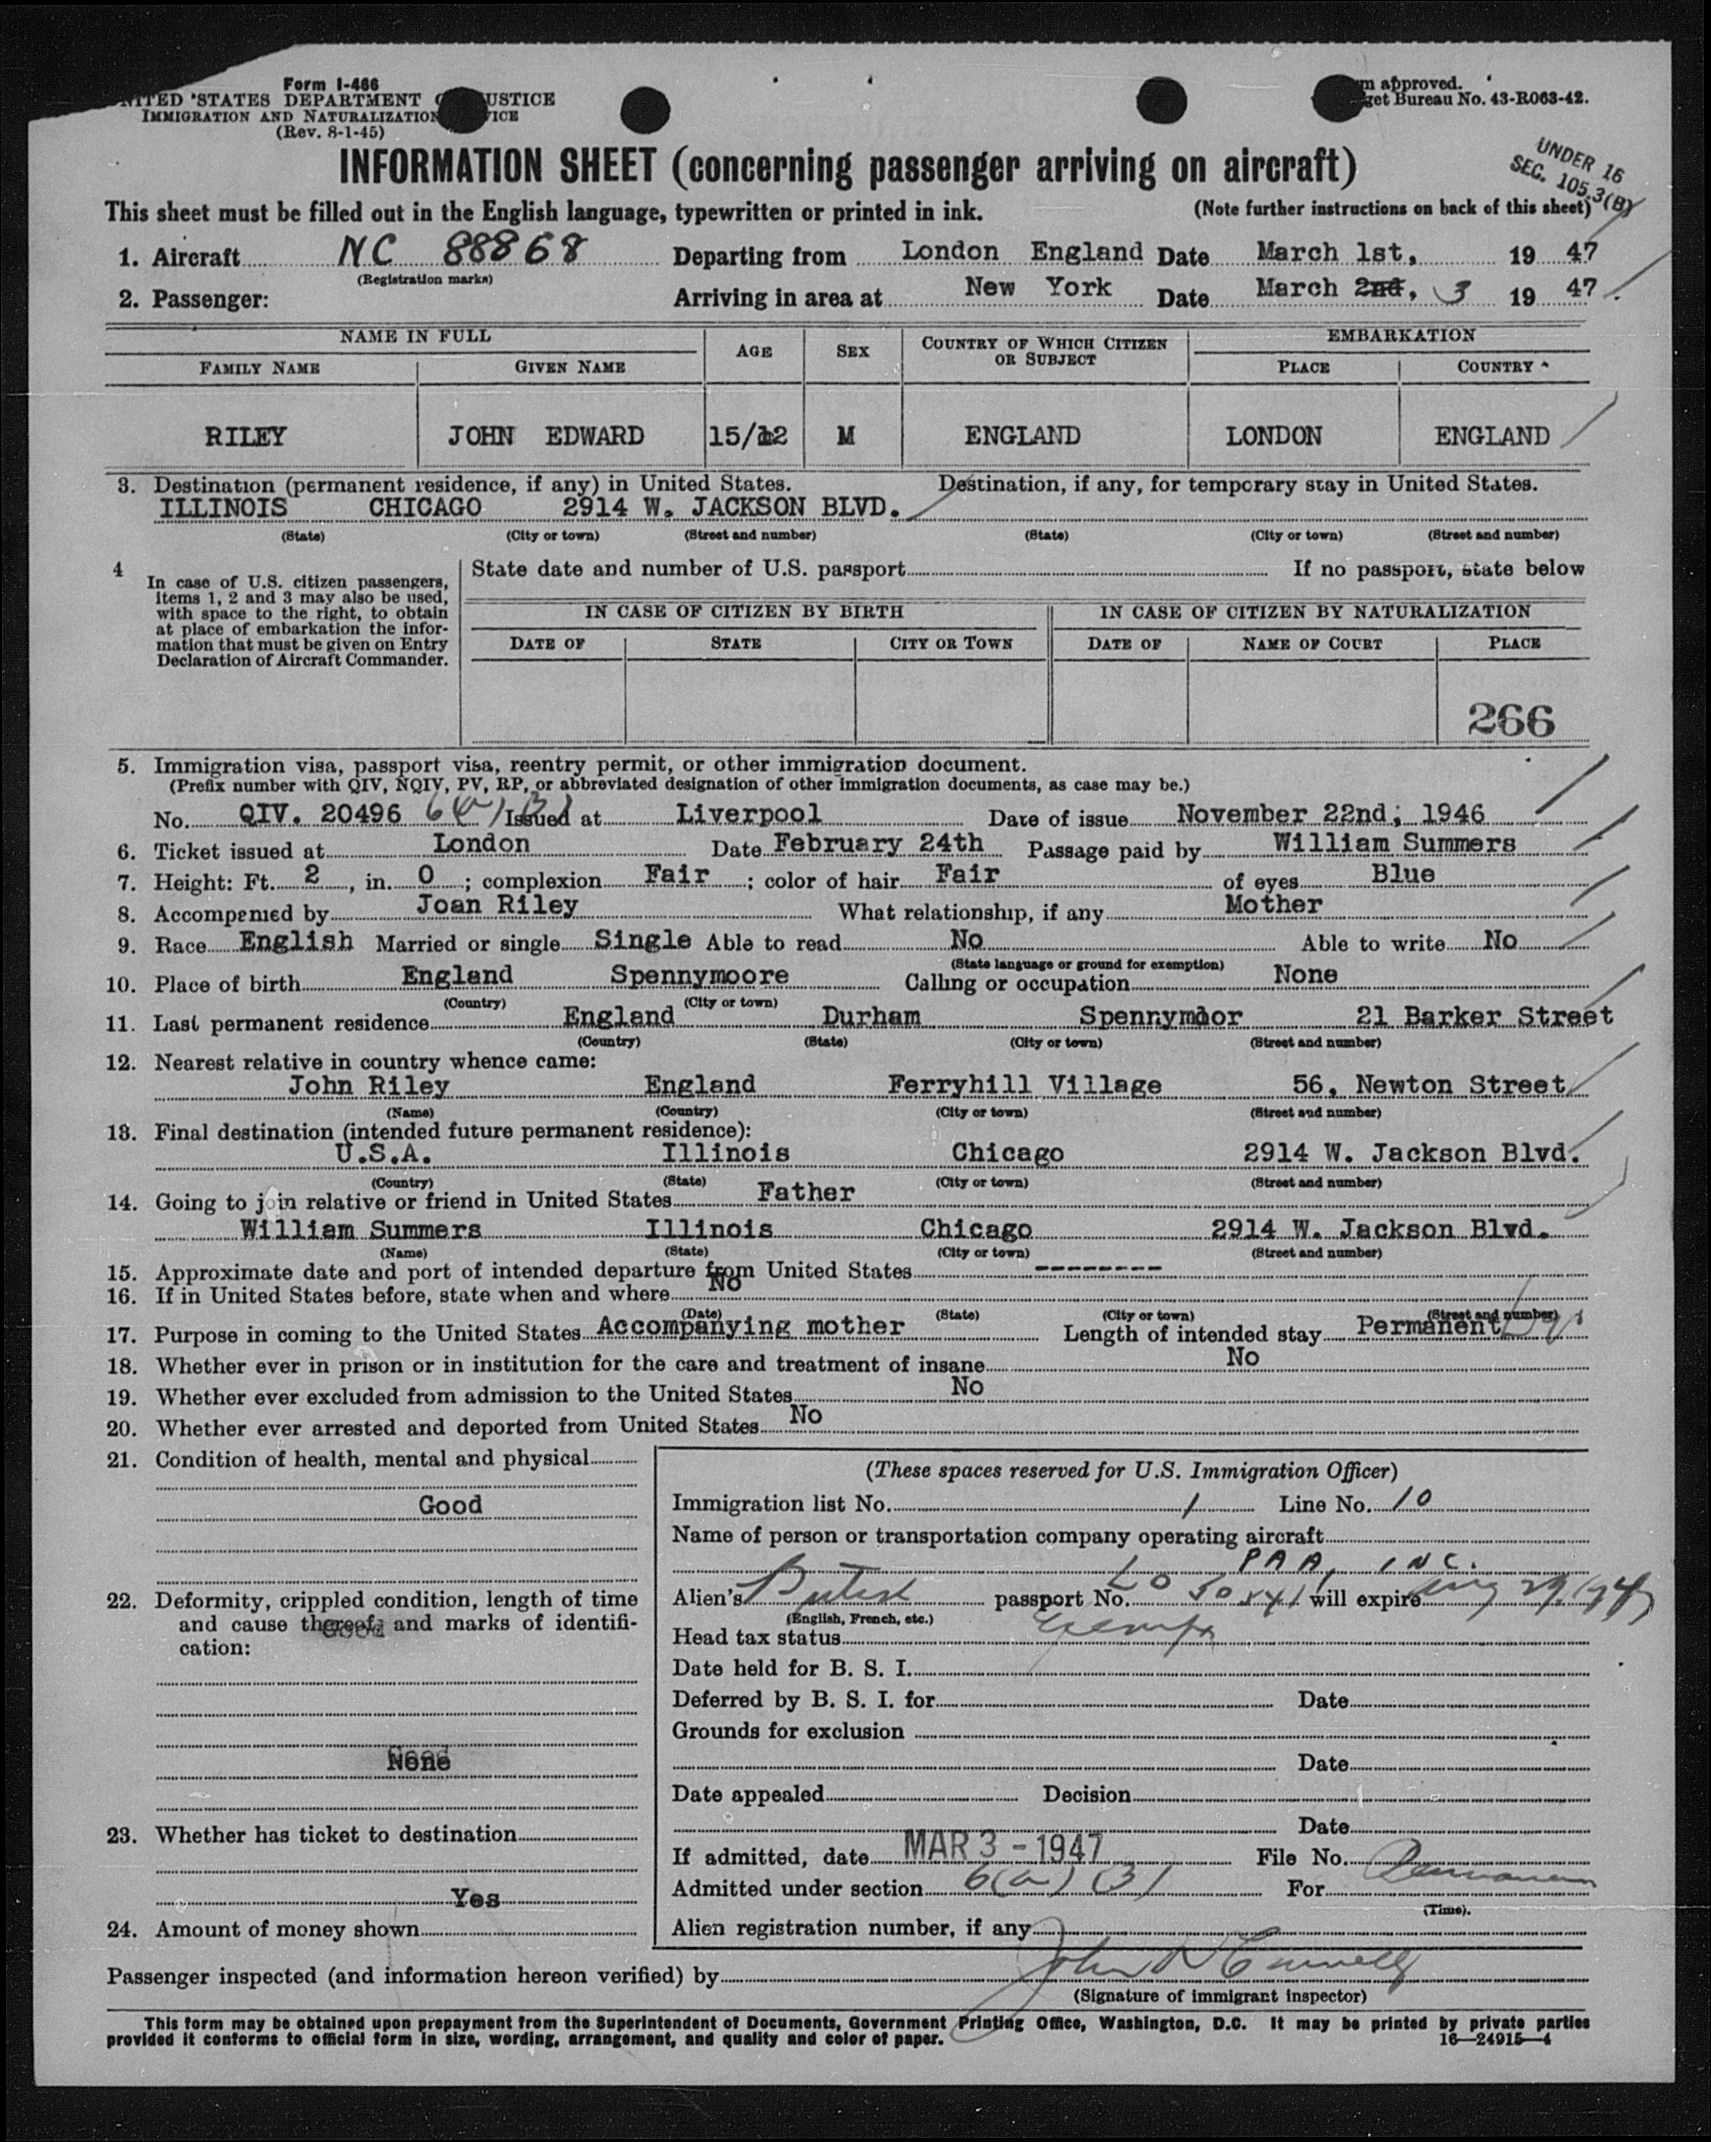 Form I-466
UNITED STATES DEPARTMENT USTICE
IMMIGRATION AND NATURALIZATION VICE
(Rev. 8-1-45)
m approved.
get Bureau No. 43-R063-42.
INFORMATION SHEET (concerning passenger arriving on aircraft)
UNDER 16
SEC. 105.3(B)
This sheet must be filled out in the English language, typewritten or printed in ink. (Note further instructions on back of this sheet)
1. Aircraft NC 88868 Departing from London England Date March 1st, 19 47
(Registration marks)
2. Passenger: Arriving in area at New York Date March 2nd, 3 19 47
NAME IN FULL AGE SEX COUNTRY OF WHICH CITIZEN OR SUBJECT EMBARKATION
FAMILY NAME GIVEN NAME PLACE COUNTRY
RILEY JOHN EDWARD 15/12 M ENGLAND LONDON ENGLAND
3. Destination (permanent residence, if any) in United States. Destination, if any, for temporary stay in United States.
ILLINOIS CHICAGO 2914 W. JACKSON BLVD.
(State) (City or town) (Street and number) (State) (City or town) (Street and number)
4 In case of U.S. citizen passengers, items 1, 2 and 3 may also be used, with space to the right, to obtain at place of embarkation the information that must be given on Entry Declaration of Aircraft Commander.
State date and number of U.S. passport If no passport, state below
IN CASE OF CITIZEN BY BIRTH IN CASE OF CITIZEN BY NATURALIZATION
DATE OF STATE CITY OR TOWN DATE OF NAME OF COURT PLACE
266
5. Immigration visa, passport visa, reentry permit, or other immigration document.
(Prefix number with QIV, NQIV, PV, RP, or abbreviated designation of other immigration documents, as case may be.)
No. QIV. 20496 6(a)(3) Issued at Liverpool Date of issue November 22nd; 1946
6. Ticket issued at London Date February 24th Passage paid by William Summers
7. Height: Ft. 2, in. 0; complexion Fair; color of hair Fair of eyes Blue
8. Accompanied by Joan Riley What relationship, if any Mother
9. Race English Married or single Single Able to read No Able to write No
(State language or ground for exemption)
10. Place of birth England Spennymoore Calling or occupation None
(Country) (City or town)
11. Last permanent residence England Durham Spennymoor 21 Barker Street
(Country) (State) (City or town) (Street and number)
12. Nearest relative in country whence came:
John Riley England Ferryhill Village 56, Newton Street
(Name) (Country) (City or town) (Street and number)
13. Final destination (intended future permanent residence):
U.S.A. Illinois Chicago 2914 W. Jackson Blvd.
(Country) (State) (City or town) (Street and number)
14. Going to join relative or friend in United States Father
William Summers Illinois Chicago 2914 W. Jackson Blvd.
(Name) (State) (City or town) (Street and number)
15. Approximate date and port of intended departure from United States --------
16. If in United States before, state when and where No
(Date) (State) (City or town) (Street and number)
17. Purpose in coming to the United States Accompanying mother Length of intended stay Permanent
18. Whether ever in prison or in institution for the care and treatment of insane No
19. Whether ever excluded from admission to the United States No
20. Whether ever arrested and deported from United States No
21. Condition of health, mental and physical
Good
22. Deformity, crippled condition, length of time
and cause thereof, and marks of identifi-
cation:
None
23. Whether has ticket to destination
Yes
24. Amount of money shown
(These spaces reserved for U.S. Immigration Officer)
Immigration list No. 1 Line No. 10
Name of person or transportation company operating aircraft
PAA, INC.
Alien's British passport No. LO 50541 will expire 1947
(English, French, etc.)
Head tax status Exempt
Date held for B. S. I.
Deferred by B. S. I. for Date
Grounds for exclusion
Date
Date appealed Decision
Date
If admitted, date MAR 3 - 1947 File No.
Admitted under section 6(a)(3) For Permanent
(Time).
Alien registration number, if any
Passenger inspected (and information hereon verified) by John
(Signature of immigrant inspector)
This form may be obtained upon prepayment from the Superintendent of Documents, Government Printing Office, Washington, D.C. It may be printed by private parties
provided it conforms to official form in size, wording, arrangement, and quality and color of paper. 16—24915-4